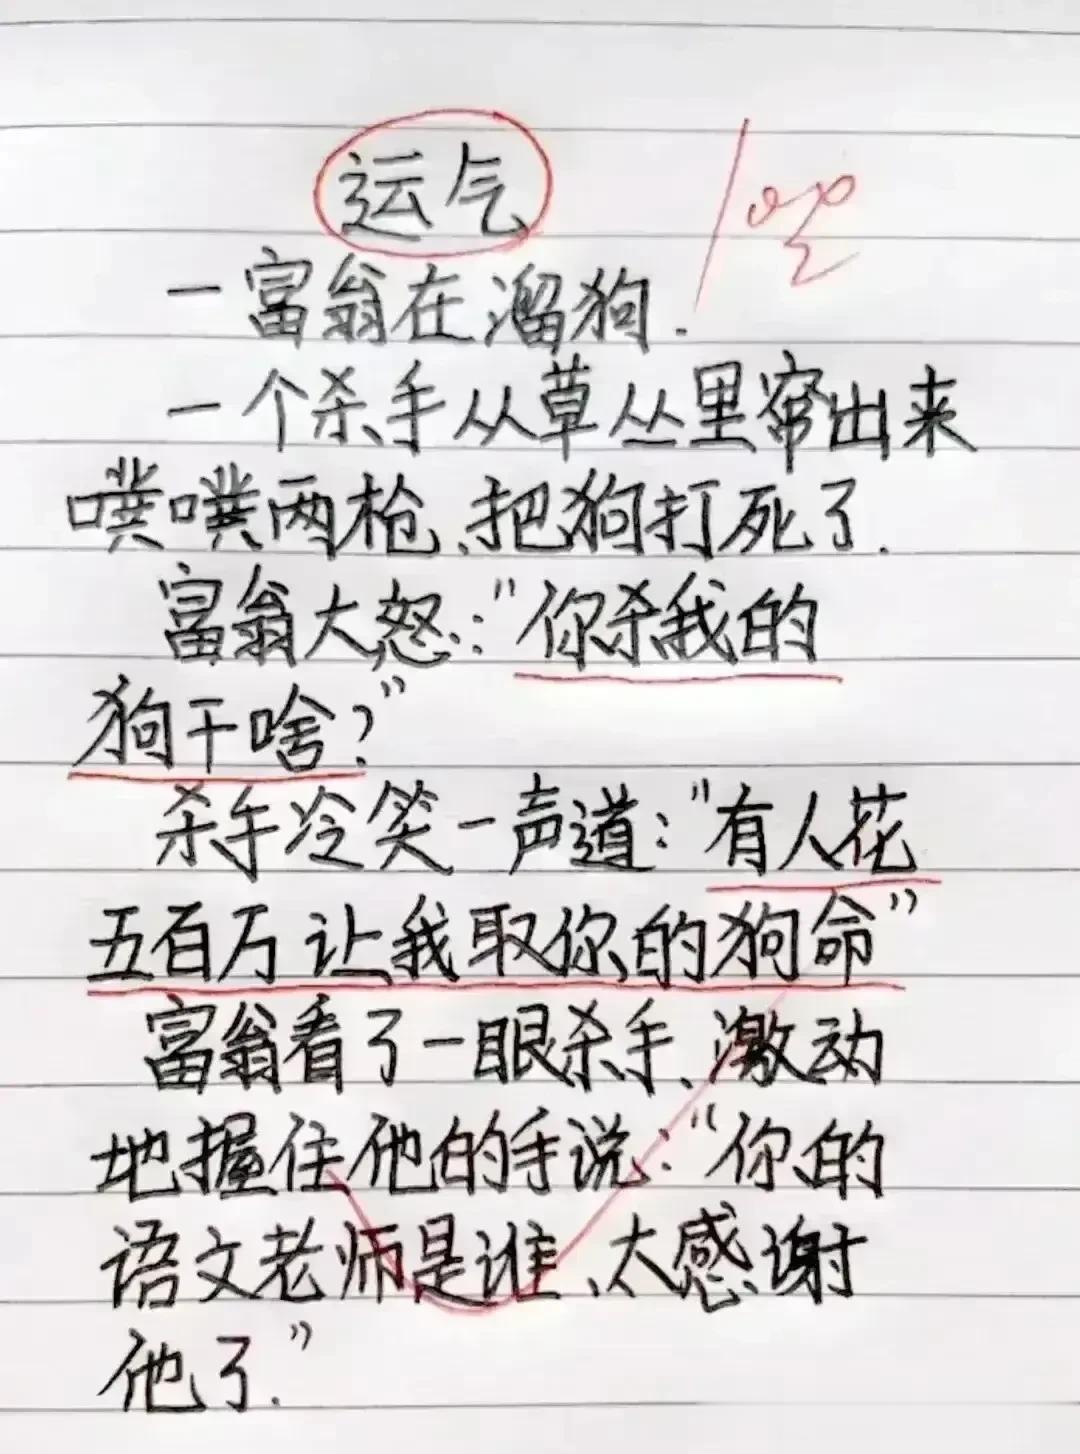 运气
一富翁在溜狗.
一个杀手从草丛里窜出来
噗噗两枪、把狗打死了.
富翁大怒:"你杀我的
狗干啥?"
杀手冷笑一声道:"有人花
五百万让我取你的狗命"
富翁看了一眼杀手、激动
地握住他的手说:"你的
语文老师是谁、太感谢
他了."